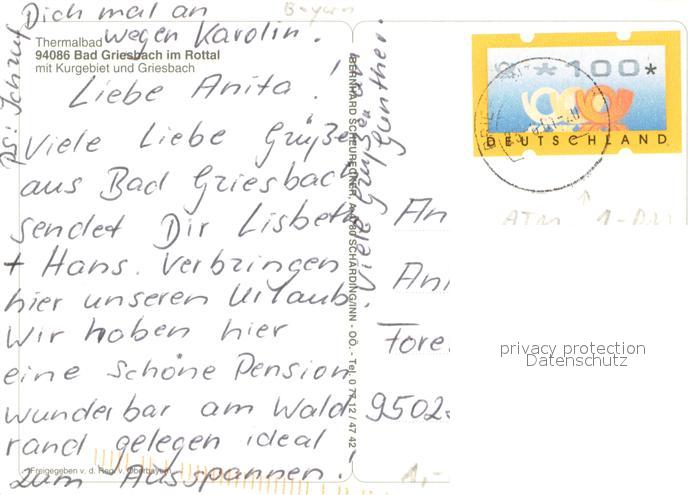 Bayern
PS: Ich ruf
Dich mal an
wegen Karolin.
Thermalbad
94086 Bad Griesbach im Rottal
mit Kurgebiet und Griesbach
Liebe Anita!
Viele Liebe Grüße
aus Bad Griesbach
sendet Dir Lisbeth
+ Hans. Verbringen
hier unseren Urlaub.
Wir haben hier
eine schöne Pension
wunderbar am Wald
rand gelegen ideal
zum Ausspannen!
Freigegeben v. d. Reg. v. Oberbayern
Viele Grüße
Günther.
BERNHARD SCHEURECKER, A-4780 SCHÄRDING/INN - OÖ. - Tel. 0 77 12 / 47 42
*100*
DEUTSCHLAND
ATM 1-
An
Ani
Fore
9502
privacy protection
Datenschutz
1,-